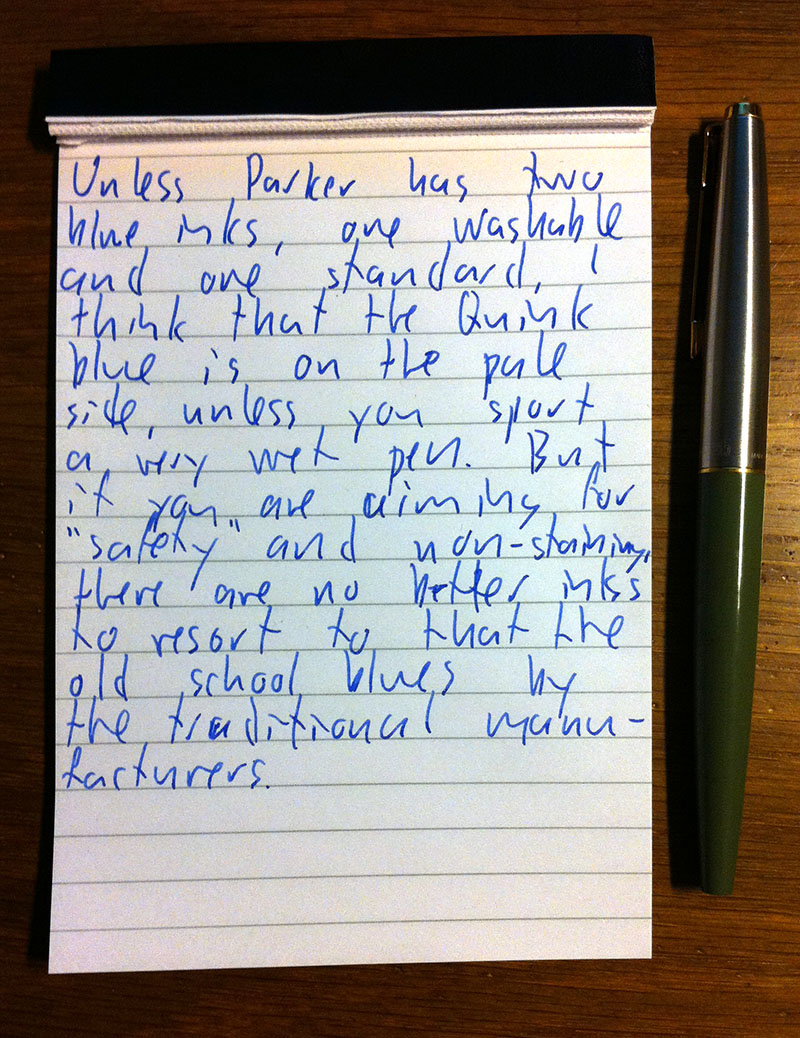 Unless Parker has two
blue inks, one washable
and one standard, I
think that the Quink
blue is on the pale
side, unless you sport
a very wet pen. But
if you are aiming for
"safety" and non-staining,
there are no better inks
to resort to that the
old school blues by
the traditional manu-
facturers.